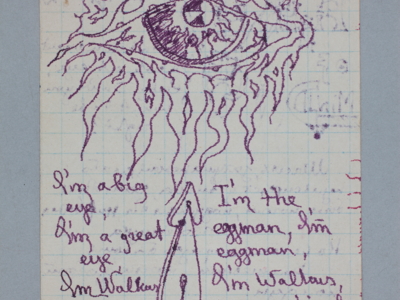 I'm a big
eye,
I'm a great
eye
I'm Walkus
I'm the
eggman, I'm
eggman,
I'm Walkus,